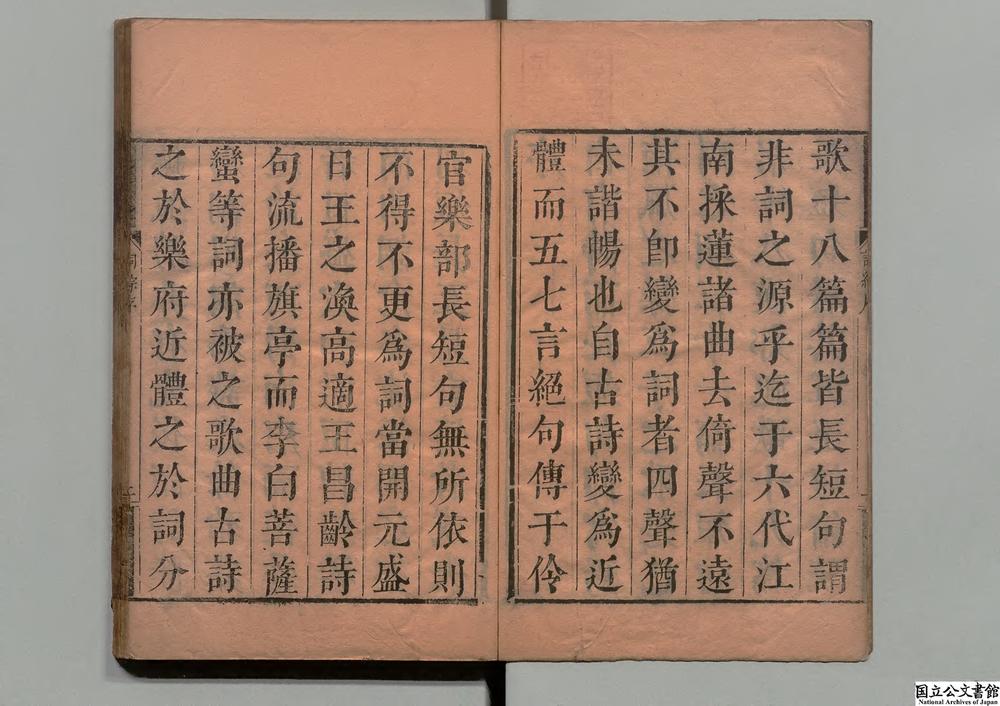 歌十八篇篇皆長短句謂
非詞之源乎迄于六代江
南採蓮諸曲去倚聲不遠
其不卽變爲詞者四聲猶
未諧暢也自古詩變爲近
體而五七言絕句傳于伶
官樂部長短句無所依則
不得不更爲詞當開元盛
日王之渙高適王昌齡詩
句流播旗亭而李白菩薩
蠻等詞亦被之歌曲古詩
之於樂府近體之於詞分
国立公文書館
National Archives of Japan